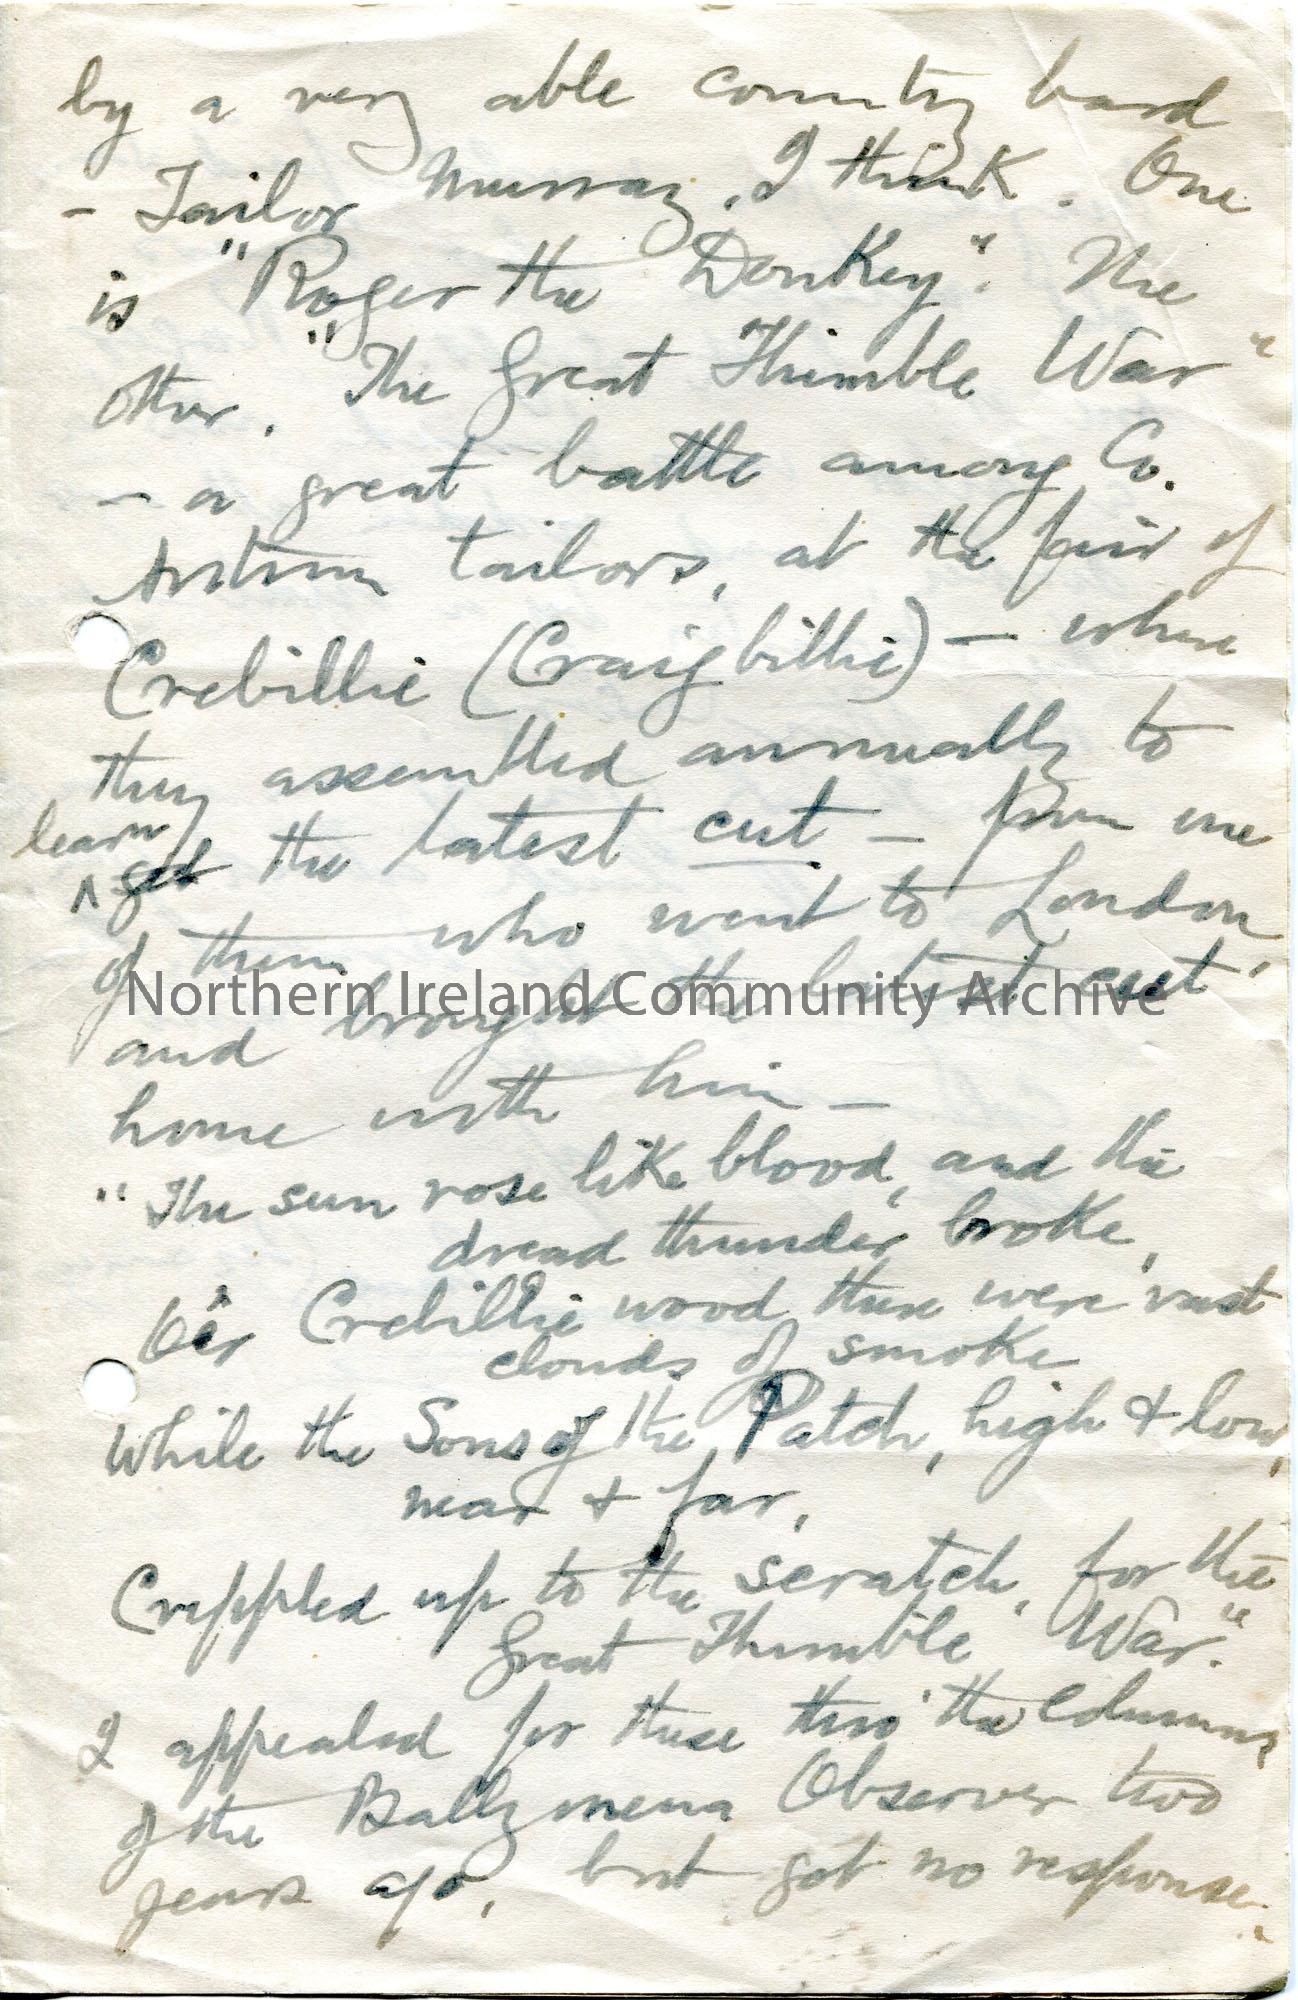 by a very able country bard
- Tailor Murray, I think. One
is "Roger the Donkey". The
other, "The Great Thimble War"
- a great battle among Co.
Antrim tailors, at the fair of
Crebillie (Craigbillie) - where
they assembled annually to
learn
^ get the latest cut - from one
of them who went to London,
and brought the latest cut
Northern Ireland Community Archive
home with him -
"The sun rose like blood, and the
dread thunder broke,
O'er Crebillie wood there were vast
clouds of smoke
While the Sons of the Patch, high & low,
near & far,
Crippled up to the scratch, for the
Great Thimble War."
I appealed for these thro' the columns
of the Ballymena Observer two
years ago, but got no response.